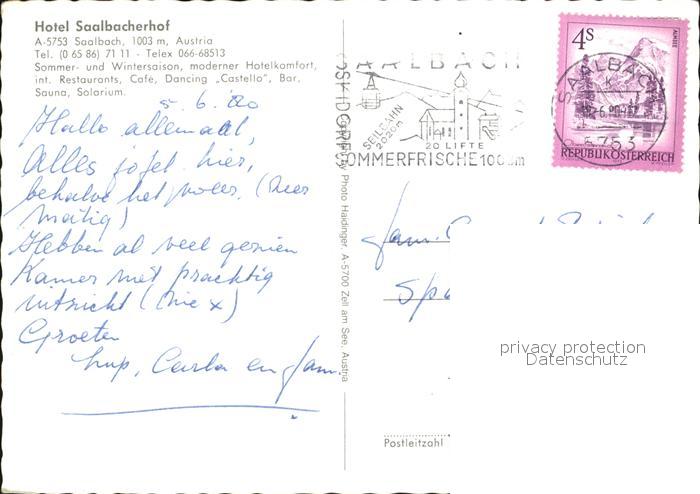 Hotel Saalbacherhof
A-5753 Saalbach, 1003 m, Austria
Tel. (0 65 86) 71 11 - Telex 066-68513
Sommer- und Wintersaison, moderner Hotelkomfort,
int. Restaurants, Café, Dancing „Castello", Bar,
Sauna, Solarium.
5.6.80
Hallo allemaal,
Alles jofel hier,
behalve het weer. (zeer
matig)
Hebben al veel gezien
Kamer met prachtig
uitzicht (zie x)
Groeten
Carla en
Photo Haidinger, A-5700 Zell am See, Austria
SAALBACH
SKIDORF
SEILBAHN
2020m
20 LIFTE
SOMMERFRISCHE 1003m
4S
ALMSEE
SAALBACH
5753
REPUBLIK ÖSTERREICH
Fam.
privacy protection
Datenschutz
Postleitzahl